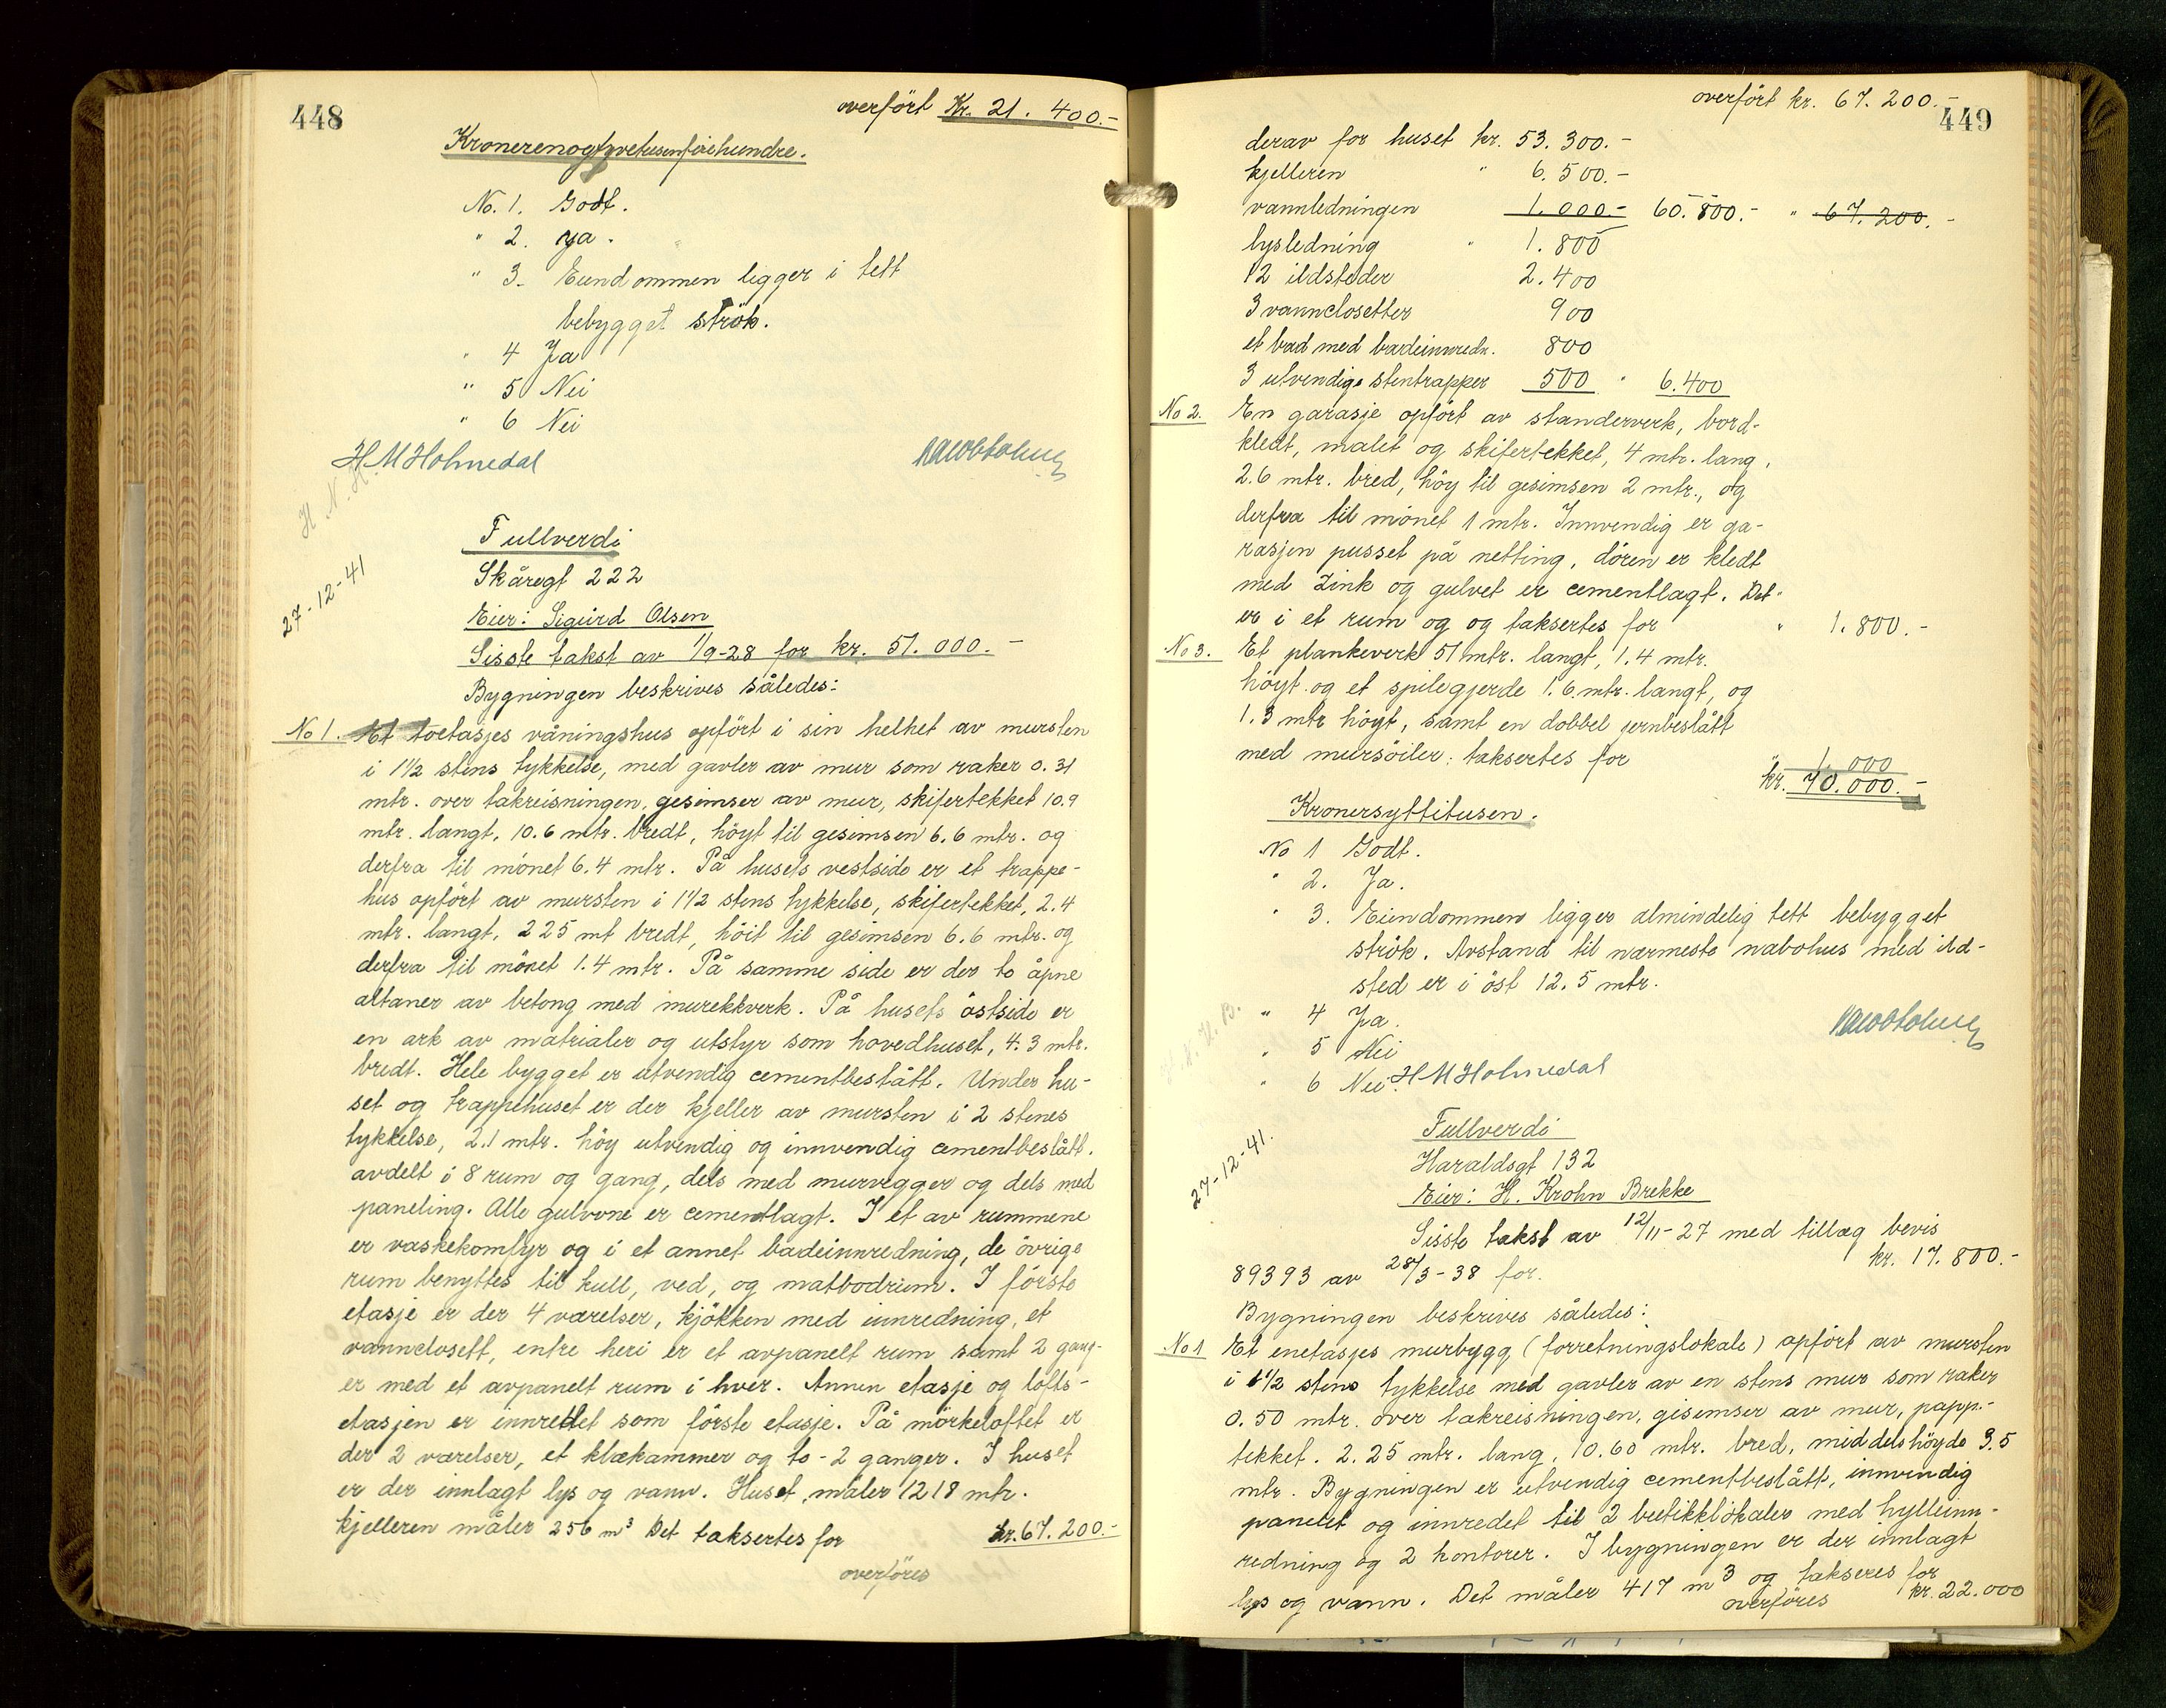 448
overført Kr. 21.400.-
Kronerenogtyvetusenfirehundre.
No. 1. Godt.
" 2. Ja.
" 3. Eiendommen ligger i tett
bebygget strök.
" 4 Ja
" 5 Nei
" 6 Nei
H M Holmedal
H. N. H.
27-12-41
Fullverdi
Skåregt 222
Eier: Sigurd Olsen
Siste takst av 1/9-28 for kr. 51.000.-
Bygningen beskrives således:
No 1. Et toetasjes våningshus opfört i sin helhet av mursten
i 1 1/2 stens tykkelse, med gavler av mur som raker 0.31
mtr. over takreisningen, gesimser av mur, skifertekket 10.9
mtr. langt, 10.6 mtr. bredt, höyt til gesimsen 6.6 mtr. og
derfra til mönet 6.4 mtr. På husets vestside er et trappe-
hus opfört av mursten i 1 1/2 stens tykkelse, skifertekket, 2.4
mtr. langt, 225 mt bredt, höit til gesimsen 6.6 mtr. og
derfra til mönet 1.4 mtr. På samme side er der to åpne
altaner av betong med murekkverk. På husets östside er
en ark av matrialer og utstyr som hovedhuset, 4.3 mtr.
bredt. Hele bygget er utvendig cementbeslått. Under hu-
set og trappehuset er der kjeller av mursten i 2 stenes
tykkelse, 2.1 mtr. höy utvendig og innvendig cementbeslått.
avdelt i 8 rum og gang, dels med murvegger og dels med
paneling. Alle gulvene er cementlagt. I et av rummene
er vaskekomfyr og i et annet badeinnredning, de övrige
rum benyttes til kull, ved, og matbodrum. I förste
etasje er der 4 værelser, kjökken med innredning, et
vannclosett, entre heri er et avpanelt rum samt 2 gang-
er med et avpanelt rum i hver. Annen etasje og lofts-
etasjen er innredtet som förste etasje. På mörkeloftet er
der 2 værelser, et klækammer og to - 2 ganger. I huset
er der innlagt lys og vann. Huset måler 1218 mtr.
kjelleren måler 256 m³ Det taksertes for kr. 67.200.-
overföres
overfört kr. 67.200.-
449
derav for huset kr. 53.300.-
kjelleren " 6.500.-
vannledningen 1.000.- 60.800.- " 67.200.-
lysledning " 1.800
12 ildsteder 2.400
3 vannclosetter 900
et bad med badeinnredn. 800
3 utvendige stentrapper 500 " 6.400
No 2. En garasje opfört av standerverk, bord-
kledt, malet og skifertekket, 4 mtr. lang,
2.6 mtr. bred, höy til gesimsen 2 mtr., og
derfra til mönet 1 mtr. Innvendig er ga-
rasjen pusset på netting, dören er kledt
med zink og gulvet er cementlagt. Det
er i et rum og og taksertes for " 1.800.-
No 3. Et plankeverk 51 mtr. langt, 1.4 mtr.
höyt og et spilegjerde 1.6 mtr. langt, og
1.3 mtr höyt, samt en dobbel jernbeslått
med mursöiler: taksertes for " 1.000
kr. 70.000.-
Kronersyttitusen.
No 1 Godt.
" 2. Ja.
" 3. Eiendommen ligger almindelig tett bebygget
strök. Avstand til nærmeste nabohus med ild-
sted er i öst 12.5 mtr.
" 4 Ja.
" 5 Nei
" 6 Nei. H M Holmedal
27-12-41.
Fullverdi
Haraldsgt 132
Eier: H. Krohn Brekke
Siste takst av 12/11-27 med tillæg bevis
89393 av 28/3-38 for. kr. 17.800.-
Bygningen beskrives således:
No 1 Et enetasjes murbygg (forretningslokale) opfört av mursten
i 1 1/2 stens tykkelse med gavler av en stens mur som raker
0.50 mtr. over takreisningen, gesimser av mur, papp-
tekket. 2.25 mtr. lang, 10.60 mtr. bred, middelshöyde 3.5
mtr. Bygningen er utvendig cementbeslått, innvendig
panelet og innredet til 2 butikklokaler med hylleinn-
redning og 2 kontorer. I bygningen er der innlagt
lys og vann. Det måler 417 m³ og takseres for
overföres kr. 22.000